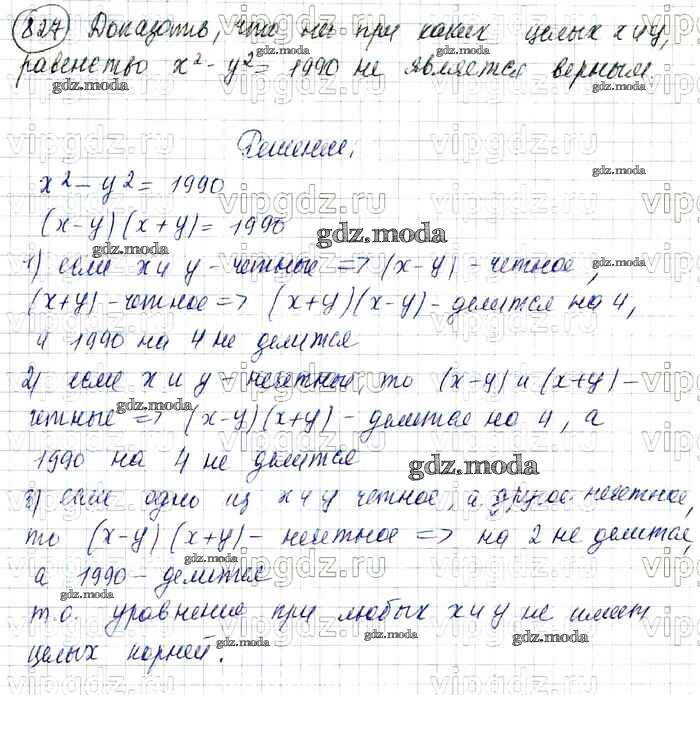 827) Доказать, что ни при каких целых x и y,
равенство x² - y² = 1990 не является верным
Решение,
x² - y² = 1990
(x-y)(x+y) = 1990
1) если x и y - четные => (x-y) - четное,
(x+y) - четное => (x+y)(x-y) - делится на 4,
и 1990 на 4 не делится
2) если x и y - нечетные, то (x-y) и (x+y) -
четные => (x-y)(x+y) - делится на 4, а
1990 на 4 не делится
3) если одно из x и y четное, а другое нечетное,
то (x-y)(x+y) - нечетное => на 2 не делится,
а 1990 - делится
т.о. уравнения при любых x и y не имеет
целых корней.
gdz.moda
vipgdz.ru